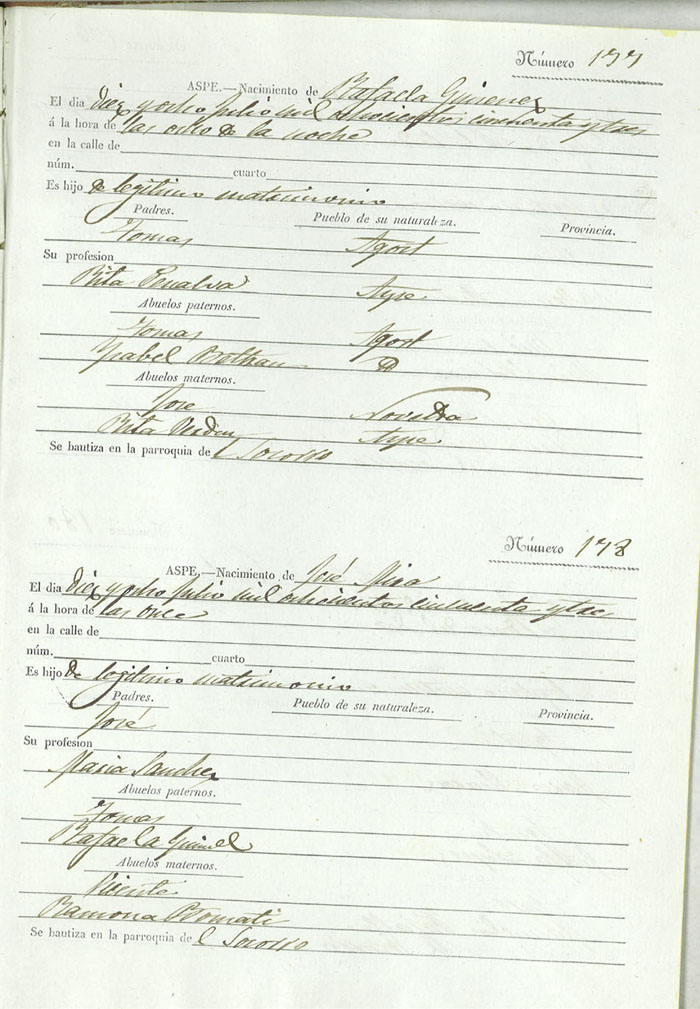 Número 177
ASPE.—Nacimiento de Rafaela Gimenez
El dia diez y ocho Julio mil ochocientos cincuenta y tres
á la hora de las ocho de la noche
en la calle de
núm. cuarto
Es hijo de legitimo matrimonio
Padres. Pueblo de su naturaleza. Provincia.
Tomas Agost
Su profesion
Rita Penalva Aspe
Abuelos paternos.
Tomas Agost
Ysabel Beltran D
Abuelos maternos.
Jose Novelda
Rita Aspe
Se bautiza en la parroquia de l Socorro
Número 178
ASPE.—Nacimiento de José Mira
El dia diez y ocho Julio mil ochocientos cincuenta y tres
á la hora de las once
en la calle de
núm. cuarto
Es hijo de legitimo matrimonio
Padres. Pueblo de su naturaleza. Provincia.
José
Su profesion
Maria Sanchez
Abuelos paternos.
Tomas
Rafaela
Abuelos maternos.
Vicente
Ramona
Se bautiza en la parroquia de l Socorro